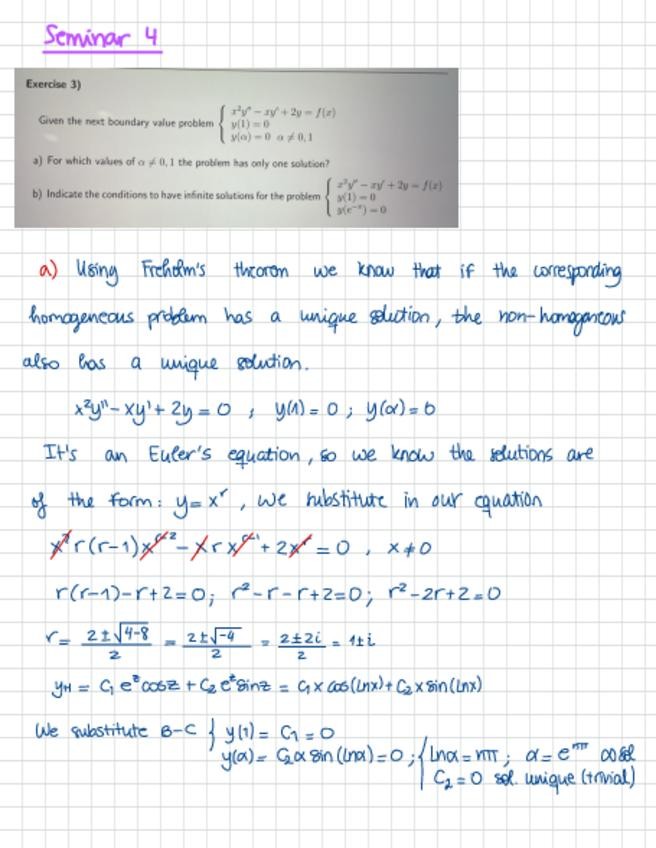 Seminar 4
Exercise 3)
Given the next boundary value problem { x²y'' − xy' + 2y = f(x)
y(1) = 0
y(α) = 0 α ≠ 0,1
a) For which values of α ≠ 0,1 the problem has only one solution?
b) Indicate the conditions to have infinite solutions for the problem { x²y'' − xy' + 2y = f(x)
y(1) = 0
y(e^{-π}) = 0
a) Using Freholm's theorem we know that if the corresponding
homogeneous problem has a unique solution, the non-homogeneous
also has a unique solution.
x²y'' − xy' + 2y = 0 ; y(1) = 0 ; y(α) = 0
It's an Euler's equation, so we know the solutions are
of the form: y = x^r, we substitute in our equation
x² r(r−1) x^{r−2} − x r x^{r−1} + 2x^r = 0 , x ≠ 0
r(r−1) − r + 2 = 0 ; r² − r − r + 2 = 0 ; r² − 2r + 2 = 0
r = (2 ± √(4−8))/2 = (2 ± √−4)/2 = (2 ± 2i)/2 = 1 ± i
y_H = C₁ e^z cos z + C₂ e^z sin z = C₁ x cos(ln x) + C₂ x sin(ln x)
We substitute B-C { y(1) = C₁ = 0
y(α) = C₂ α sin(ln α) = 0 ; { ln α = nπ ; α = e^{nπ} ∞ sol
C₂ = 0 sol. unique (trivial)